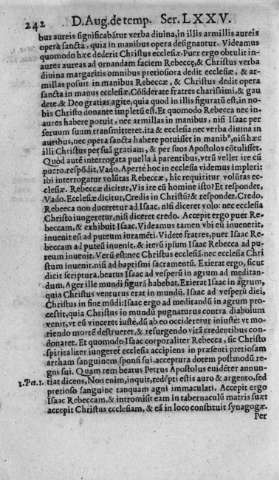 242 D. Aug. de temp. Ser. LXXV.
bus aureis significabãtur verba diuina, in illis armillis aureis
opera sancta. quia in manibus opera designantur. Videamus
quomodo hæc dederit Christus ecclesiæ. Puer ergo obtulit in-
aures aureas ad ornandam faciem Rebeccæ, & Christus verba
diuina margaritis omnibus pretiosiora dedit ecclesiæ, & ar-
millas posuit in manibus Rebeccæ, & Christus dedit opera
sancta in manus ecclesiæ. Cõsiderate fratres charissimi, & gau
dete. & Deo gratias agite, quia quod in illis figuratũ est, in no-
bis Christo donante impletũ est. Et quomodo Rebecca nec in-
aures habere potuit, nec armillas in manibus, nisi Isaac per
seruum suum transmitteret, ita & ecclesia nec verba diuina in
auribus, nec opera sancta habere potuisset in manib⁹, nisi hæc
illi Christus per suã gratiam, & per suos Apostolos cõtulisset.
Quòd autē interrogata puella à parentibus, vtrũ vellet ire cũ
puero, respõdit, Vado. Apertè hoc in ecclesia videmus impleri:
ibi interrogatur volũtas Rebeccæ, hîc requiritur volũtas ec-
clesiæ. Rebeccæ dicitur, Vis ire cũ homine isto? Et respondet,
Vado. Ecclesiæ dicitur, Credis in Christũ? & respondet, Credo.
Rebecca non duceretur ad Isaac, nisi diceret volo: nec ecclesia
Christo iungeretur, nisi diceret credo. Accepit ergo puer Re-
beccam, & exhibuit Isaac. Videamus tamen vbi eũ inuenerit:
inuenit eũ ad puteum iuramēti. Videte fratres, puer Isaac Re-
beccam ad puteũ inuenit, & iterũ ipsum Isaac Rebecca ad pu-
teum inuenit. Verũ est: nec Christus ecclesiã, nec ecclesia Chri
stum inuenit, nisi ad baptismi sacramentũ. Exierat ergo, sicut
dicit scriptura, beatus Isaac ad vesperũ in agrum ad meditan-
dum. Ager ille mundi figurã habebat. Exierat Isaac in agrum,
quia Christus venturus erat in mundũ. Isaac ad vesperũ diei,
Christus in fine mũdi: Isaac ergo ad meditandũ in agrum pro-
cessit, quia Christus in mundũ pugnaturus contra diabolum
venit, vt eũ vinceret iustè, dũ ab eo occideretur iniustè: vt mo-
riendo mortē destrueret, & resurgendo vitã credentibus con-
donaret. Et quomodo Isaac corporaliter Rebecca, sic Christo
spiritaliter iungeret ecclesia accipiens in præsenti pretiosam
arrham sanguinem sponsi sui, acceptura postmodum dotem re-
gni sui. Quam rem beatus Petrus Apostolus euidēter annun-
1. Pet. 1. tiat dicens, Nos enim, inquit, redēpti estis auro & argento, sed
pretioso sanguine tanquam agni immaculati. Accepit ergo
Isaac Rebeccam, & intromisit eam in tabernaculũ matris suæ:
accepit Christus ecclesiam, & eã in loco constituit synagogæ.
Per